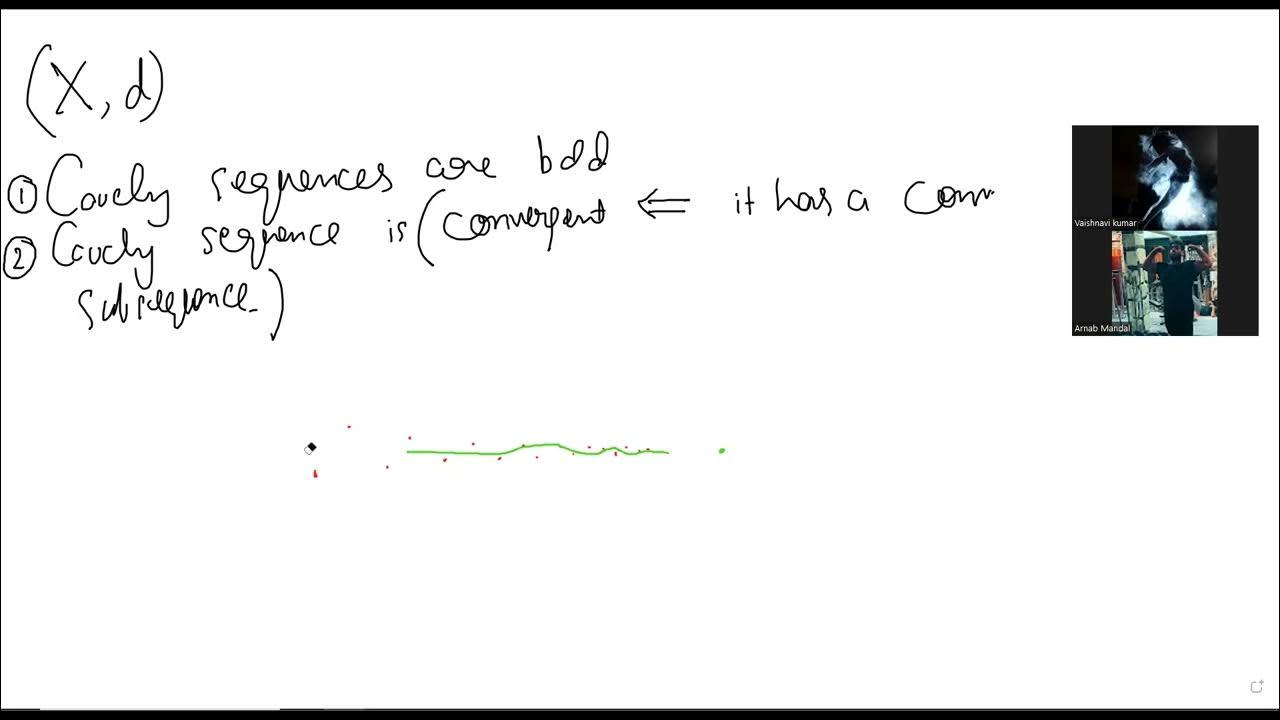 (X, d)
① Cauchy sequences are bdd
② Cauchy sequence is (convergent ⇐ it has a conv
subsequence.)
Vaishnavi kumar
Arnab Mandal